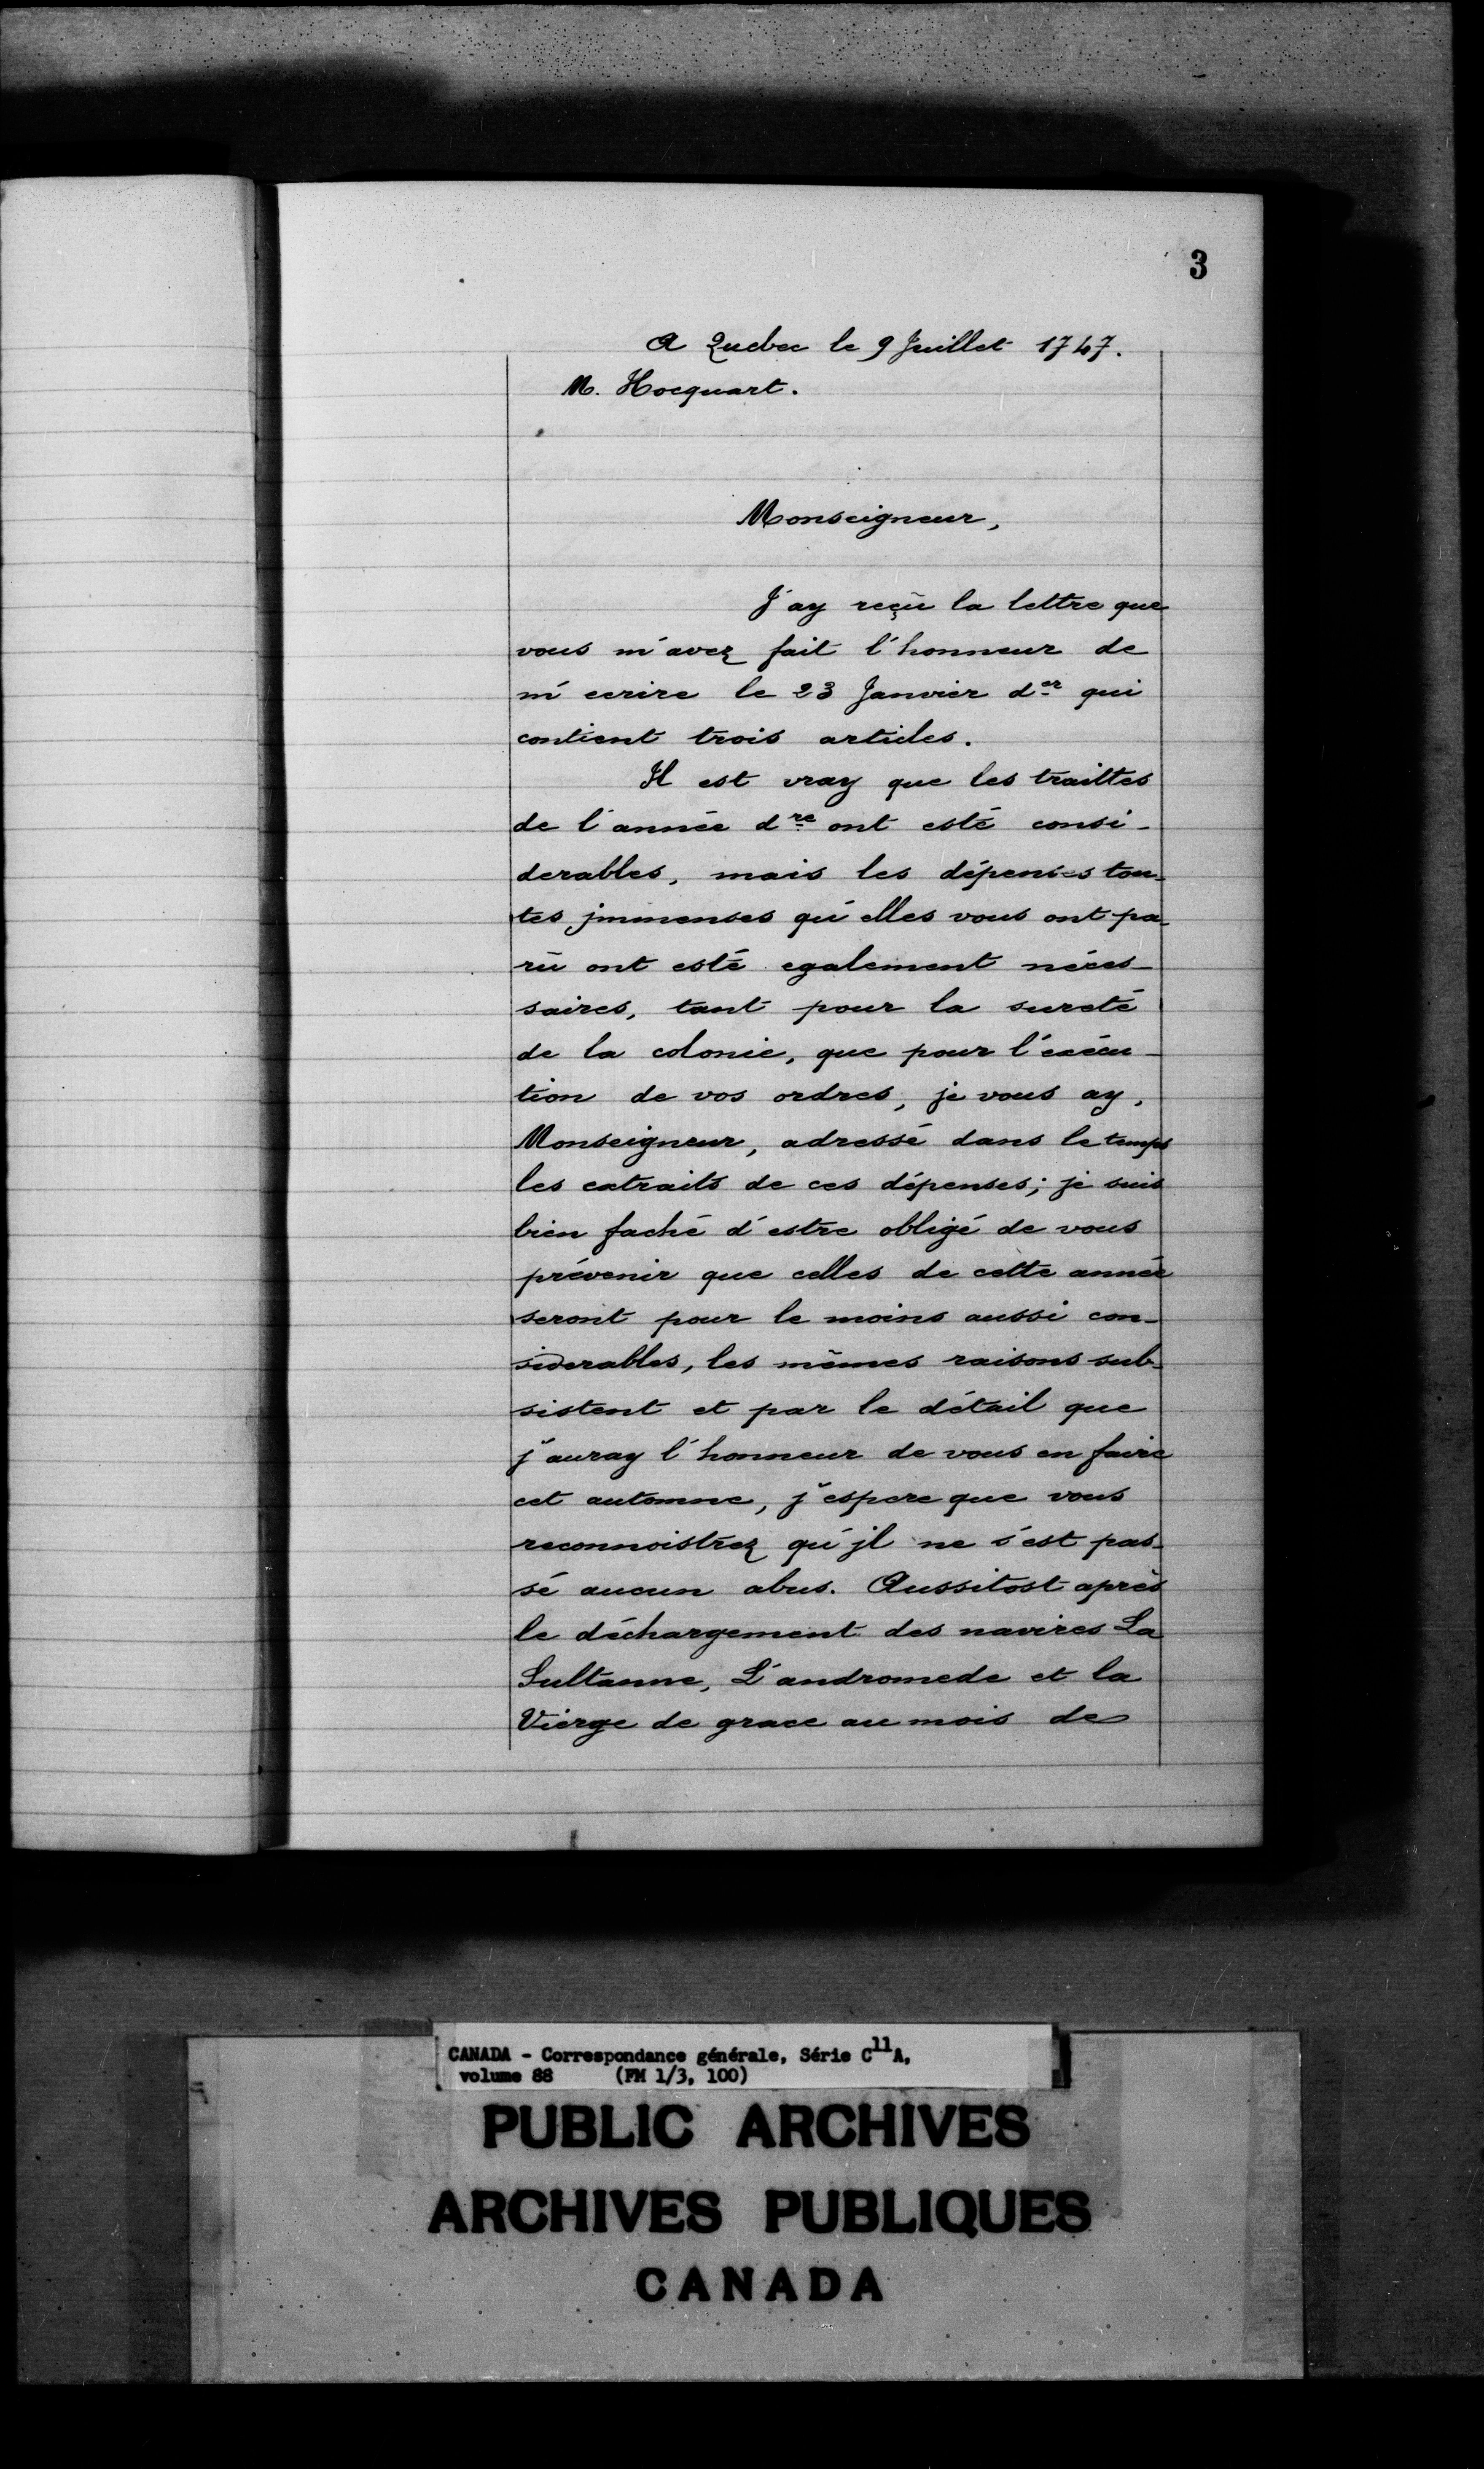 3
A Quebec le 9 Juillet 1747.
M. Hocquart.
Monseigneur,
J'ay reçû la lettre que
vous m'avez fait l'honneur de
m'ecrire le 23 Janvier d.er qui
contient trois articles.
Il est vray que les traittes
de l'année d.re ont esté consi-
derables, mais les dépenses tou-
tes jmmenses qu'elles vous ont pa-
rû ont esté egalement néces-
saires, tant pour la sureté
de la colonie, que pour l'éxécu-
tion de vos ordres, je vous ay,
Monseigneur, adressé dans le temps
les extraits de ces dépenses; je suis
bien faché d'estre obligé de vous
prévenir que celles de cette année
seront pour le moins aussi con-
siderables, les mêmes raisons sub-
sistent et par le détail que
j'auray l'honneur de vous en faire
cet automne, j'espere que vous
reconnoistrez qu'jl ne s'est pas-
sé aucun abus. Aussitost après
le déchargement des navires La
Sultanne, L'andromede et la
Vierge de grace au mois de
CANADA - Correspondance générale, Série C11A,
volume 88 (FM 1/3, 100)
PUBLIC ARCHIVES
ARCHIVES PUBLIQUES
CANADA